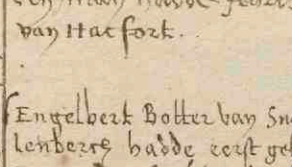 van Hacfort.
Engelbert Botter van Sne
lenberch hadde eerst gel